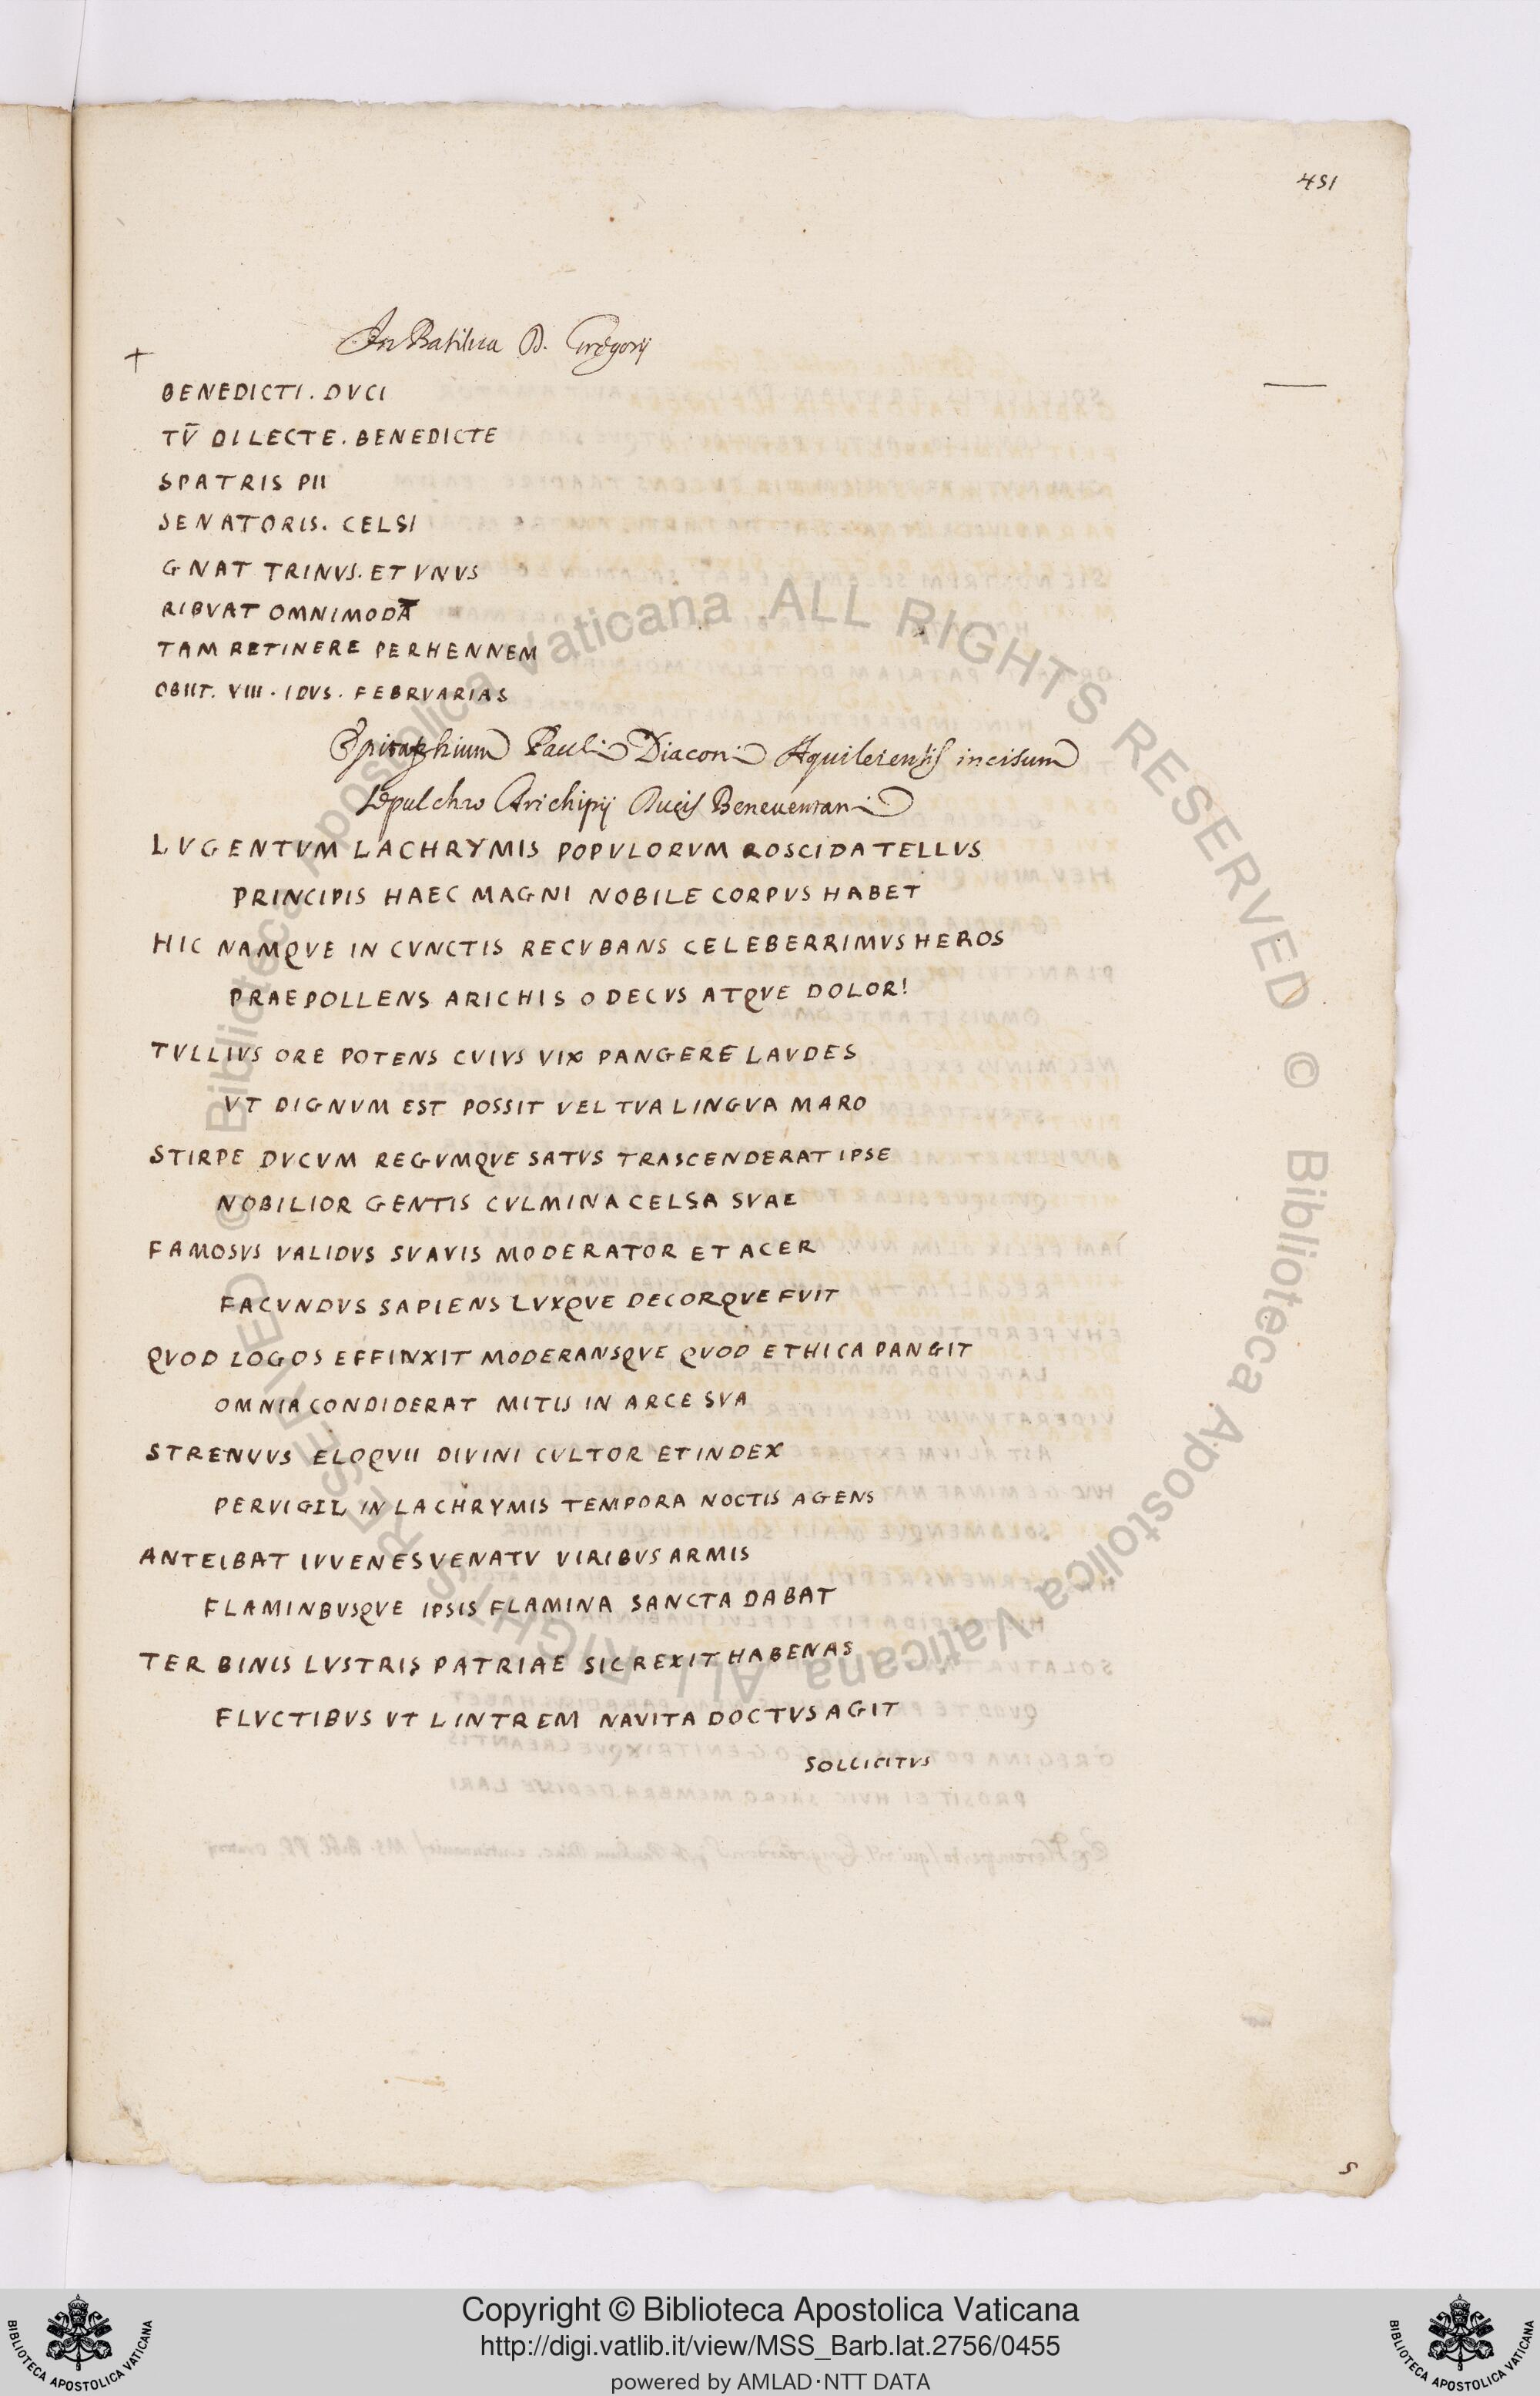 451
In Basilica D. Gregorij
+
BENEDICTI. DVCI
TV̄ DILECTE. BENEDICTE
SPATRIS PII
SENATORIS. CELSI
GNAT TRINVS. ET VNVS
RIBVAT OMNIMODA
TAM RETINERE PERHENNEM
OBIIT. VIII. IDVS. FEBRVARIAS
Epitaphium Pauli Diaconi Aquileiensis incisum
sepulchro Arichipij Ducis Beneuentani
LVGENTVM LACHRYMIS POPVLORVM ROSCIDA TELLVS
PRINCIPIS HAEC MAGNI NOBILE CORPVS HABET
HIC NAMQVE IN CVNCTIS RECVBANS CELEBERRIMVS HEROS
PRAEPOLLENS ARICHIS O DECVS ATQVE DOLOR!
TVLLIVS ORE POTENS CVIVS VIX PANGERE LAVDES
VT DIGNVM EST POSSIT VEL TVA LINGVA MARO
STIRPE DVCVM REGVMQVE SATVS TRASCENDERAT IPSE
NOBILIOR GENTIS CVLMINA CELSA SVAE
FAMOSVS VALIDVS SVAVIS MODERATOR ET ACER
FACVNDVS SAPIENS LVXQVE DECORQVE FVIT
QVOD LOGOS EFFINXIT MODERANSQVE QVOD ETHICA PANGIT
OMNIA CONDIDERAT MITIS IN ARCE SVA
STRENVVS ELOQVII DIVINI CVLTOR ET INDEX
PERVIGIL IN LACHRYMIS TEMPORA NOCTIS AGENS
ANTEIBAT IVVENES VENATV VIRIBVS ARMIS
FLAMINBVSQVE IPSIS FLAMINA SANCTA DABAT
TER BINIS LVSTRIS PATRIAE SIC REXIT HABENAS
FLVCTIBVS VT LINTREM NAVITA DOCTVS AGIT
SOLLICITVS
S
© Biblioteca Apostolica Vaticana ALL RIGHTS RESERVED © Biblioteca Apostolica Vaticana ALL RIGHTS RESERVED
Copyright © Biblioteca Apostolica Vaticana
http://digi.vatlib.it/view/MSS_Barb.lat.2756/0455
powered by AMLAD·NTT DATA
BIBLIOTECA APOSTOLICA VATICANA
BIBLIOTECA APOSTOLICA VATICANA